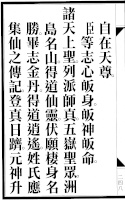 自在天尊
臣等志心皈身皈神皈命
諸天上聖列派師真五嶽聖眾洲
島名山得道仙靈伏願棲身名
勝畢志金丹得道逍遙姓氏應
集仙之傳記登真日躋元神升